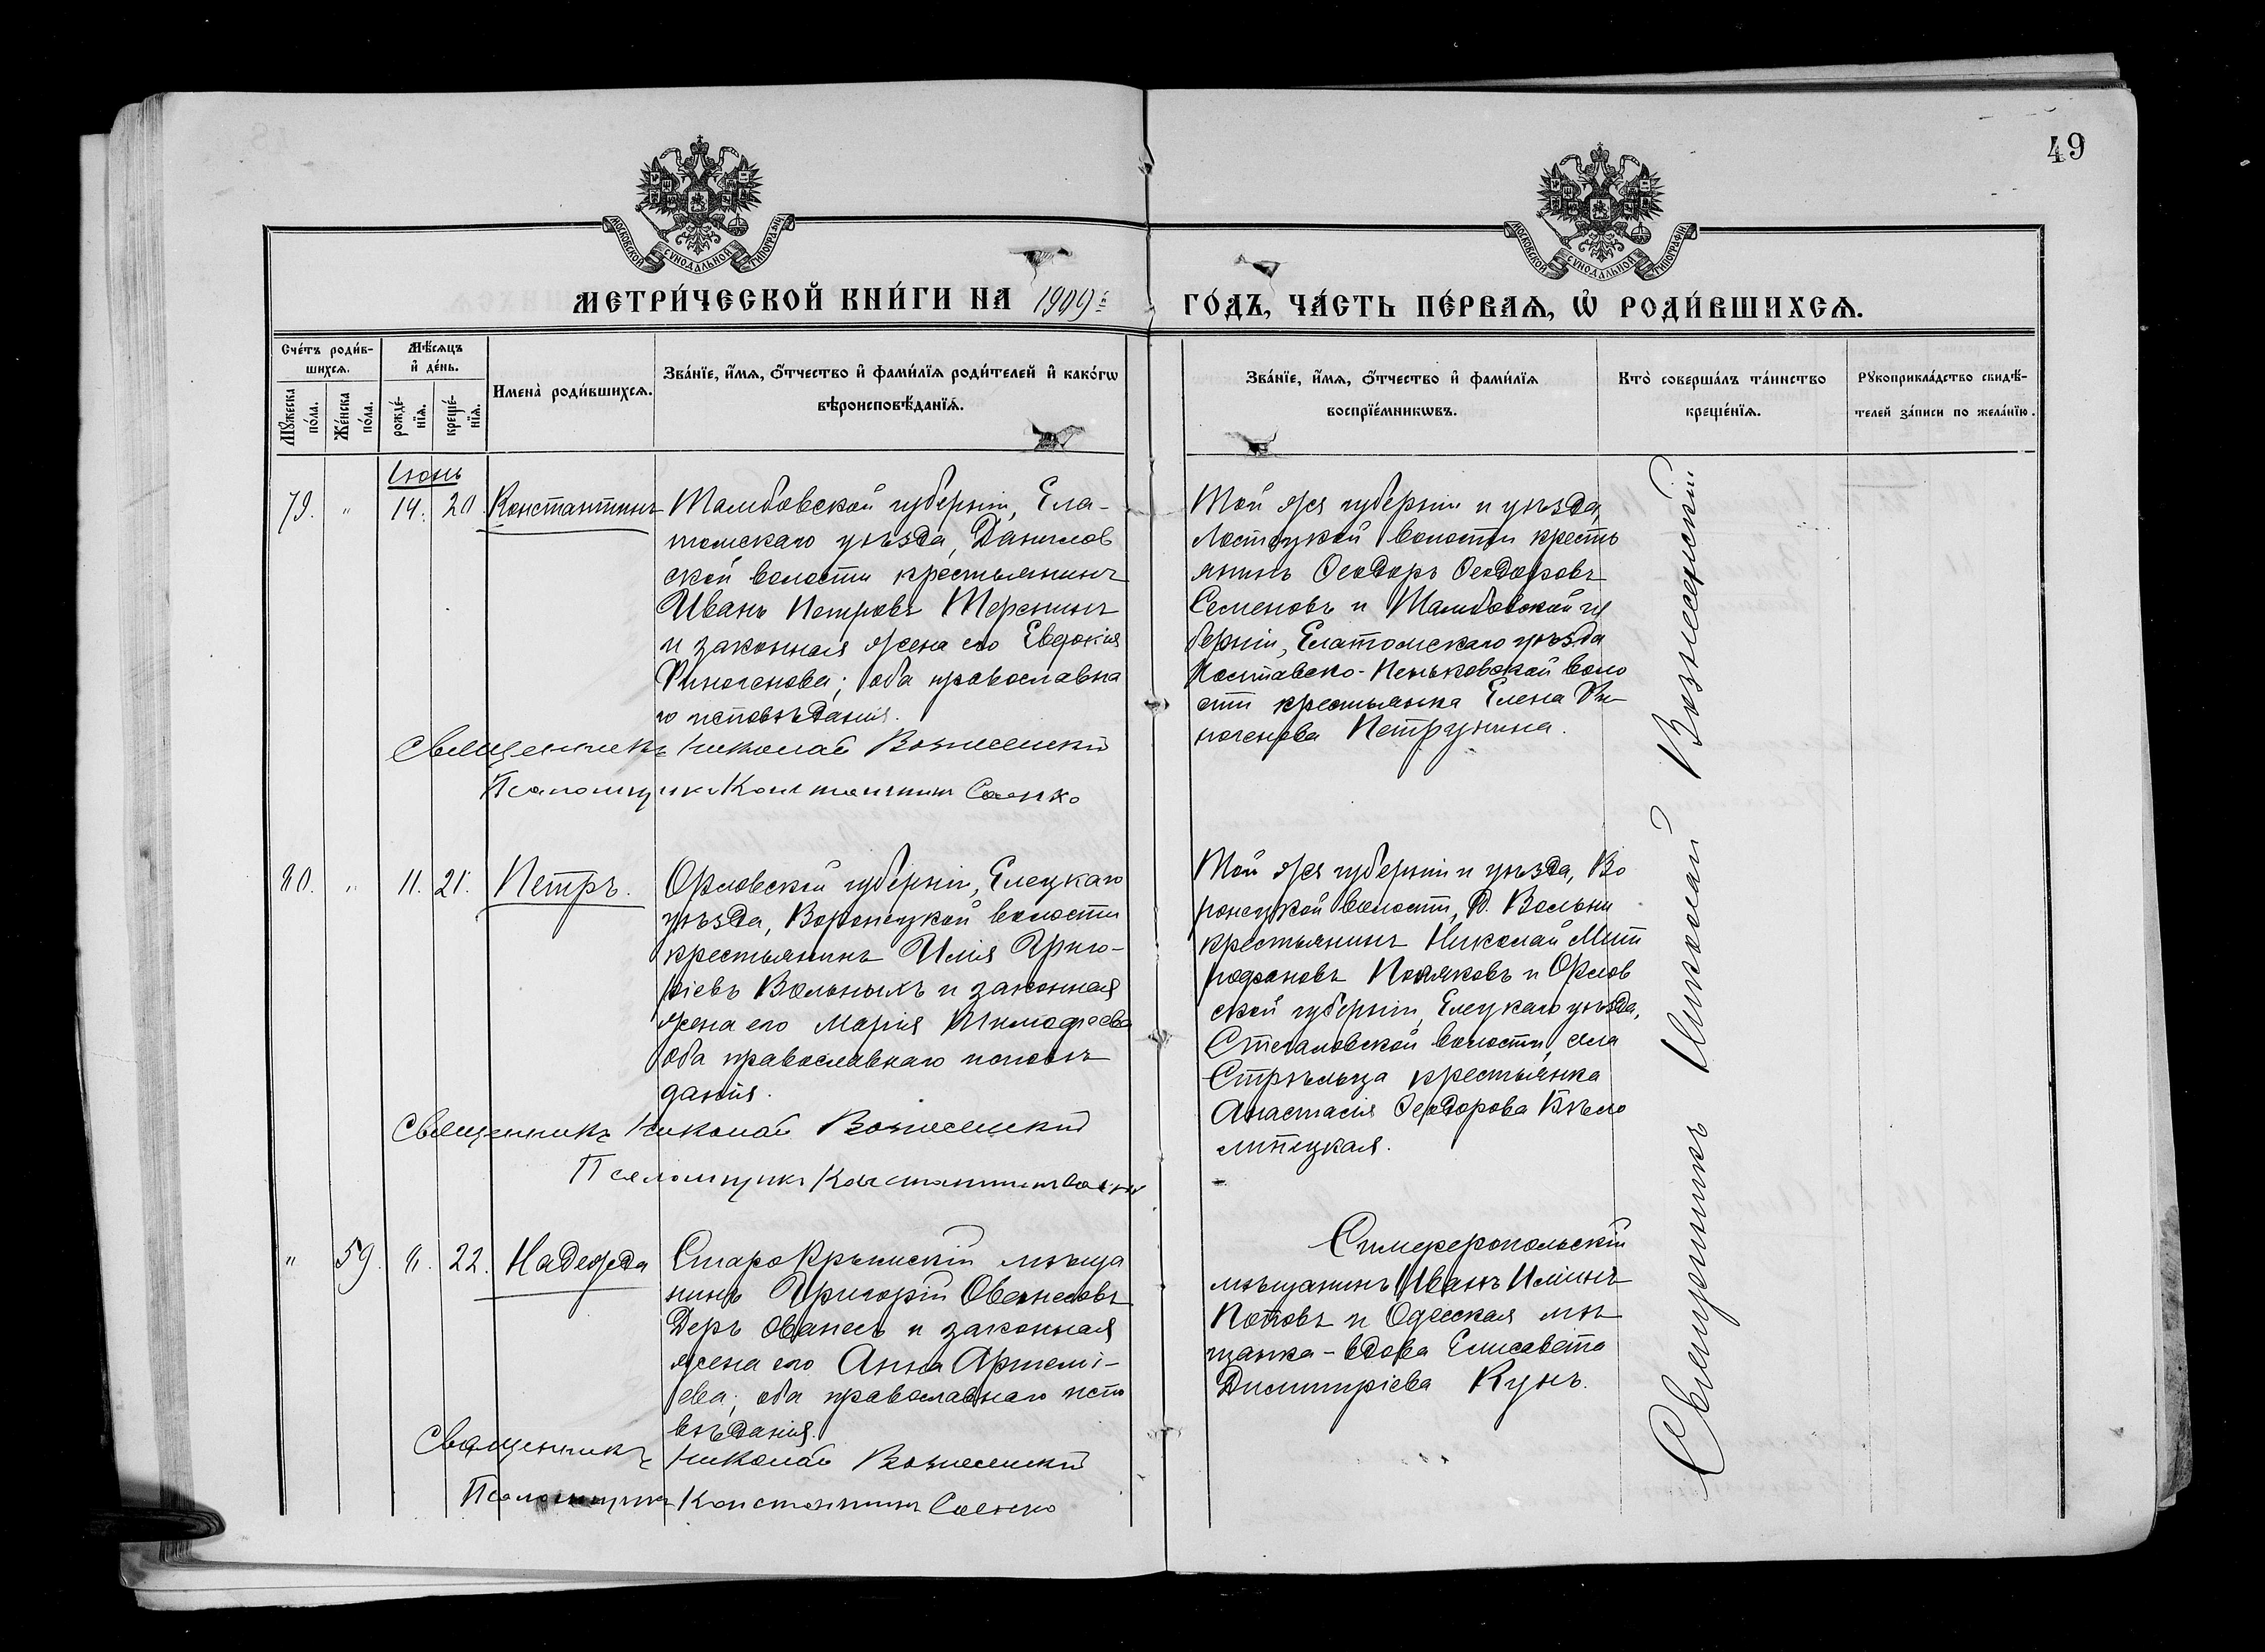 49
МОСКОВСКОЙ СѴНОДАЛЬНОЙ ТИПОГРАФІИ
МОСКОВСКОЙ СѴНОДАЛЬНОЙ ТИПОГРАФІИ
МЕТРИ́ЧЕСКОЙ КНИ́ГИ НА 1909 ГО́ДЪ, ЧА́СТЬ ПЕ́РВАѦ, Ѡ҆ РОДИ́ВШИХСѦ.
Сче́тъ роди́в-
шихсѧ.
Мꙋ́жеска по́ла.
Же́нска по́ла.
Мѣ́сѧцъ и҆ де́нь.
рожде́-нїѧ.
креще́-нїѧ.
Имена̀ роди́вшихсѧ.
Зва́нїе, и҆́мѧ, ѻ҆́тчество и҆ фами́лїѧ роди́телей и҆ како́гѡ
вѣроисповѣ́данїѧ.
Зва́нїе, и҆́мѧ, ѻ҆́тчество и҆ фами́лїѧ
воспрїе́мникѡвъ.
Кто̀ соверша́лъ та́инство
креще́нїѧ.
Рꙋкоприкла́дство свидѣ́-
телей за́писи по жела́нїю.
Іюнь
79. " 14. 20 Константинъ
Тамбовской губерніи, Ела-
томскаго уѣзда, Данилов
ской волости крестьянинъ
Иванъ Петровъ Теренинъ
и законная жена его Евдокія
Финогенова; оба православна
го исповѣданія.
Священникъ Николай Вознесенскій
Псаломщикъ Константинъ Саенко
Той же губерніи и уѣзда,
волости кресть
янинъ Ѳеодоръ Ѳеодоровъ
Семеновъ и Тамбовской гу
берніи, Елатомскаго уѣзда
Пеньковской воло
сти крестьянка Елена Фи-
ногенова Петрунина.
80. " 11. 21. Петръ.
Орловской губерніи, Елецкаго
уѣзда, Воронецкой волости
крестьянинъ Илія Григо-
ріевъ Вольныхъ и законная
жена его Марія Тимофеева
оба православнаго исповѣ
данія.
Священникъ Николай Вознесенскій
Псаломщикъ Константинъ Саенко
Той же губерніи и уѣзда, Во
ронецкой волости, д. Вольни
крестьянинъ Николай Мит
рофановъ Поляковъ и Орлов
ской губерніи, Елецкаго уѣзда,
Стегаловской волости, села
Стрѣльца крестьянка
Анастасія Ѳеодорова Бѣло
липецкая.
" 59. 8. 22. Надежда
Старокрымскій мѣща
нинъ Григорій Ованесовъ
Деръ Ованесъ и законная
жена его Анна Артемі-
ева; оба православнаго испо
вѣданія.
Священникъ Николай Вознесенскій
Псаломщикъ Константинъ Саенко
Симферопольскій
мѣщанинъ Иванъ Ильинъ
Поповъ и Одесская мѣ
щанка - вдова Елисавета
Димитріева Кунъ.
Священникъ Николай Вознесенскій